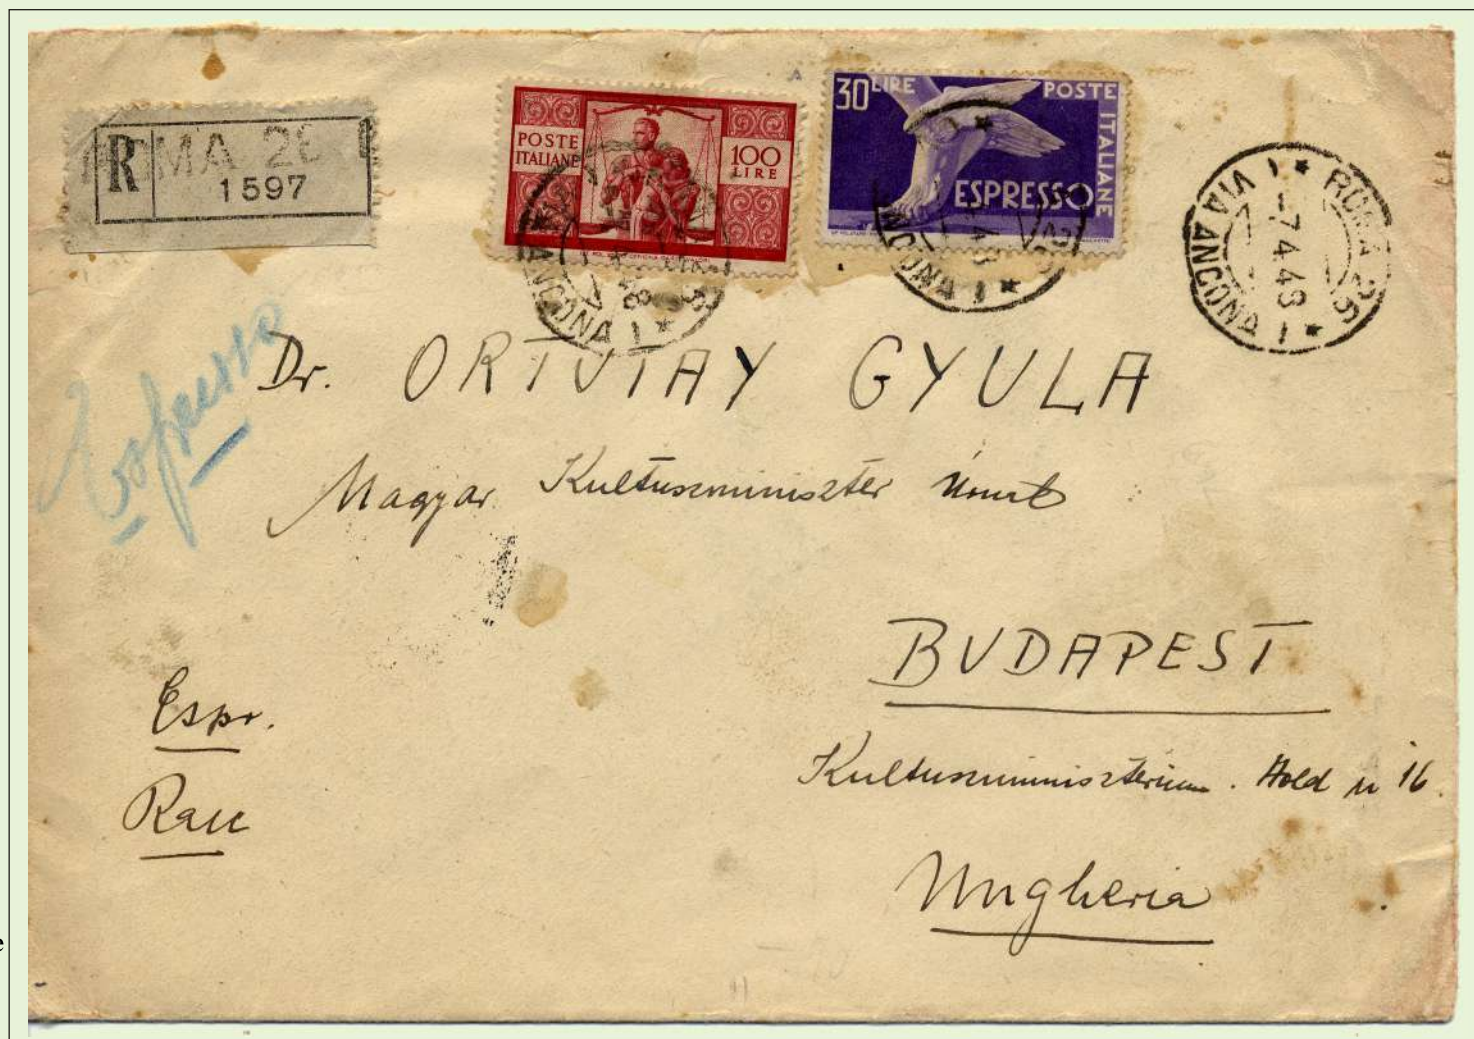 R
ROMA 26
1597
POSTE
ITALIANE
100
LIRE
30 LIRE
POSTE ITALIANE
ESPRESSO
ROMA 26
VIA ANCONA
-7.4.48
Espresso
Dr. ORTUTAY GYULA
Magyar Kultuszminiszter Úrnak
BUDAPEST
Espr.
Kultuszminisztérium. Hold u 16.
Racc
Ungheria